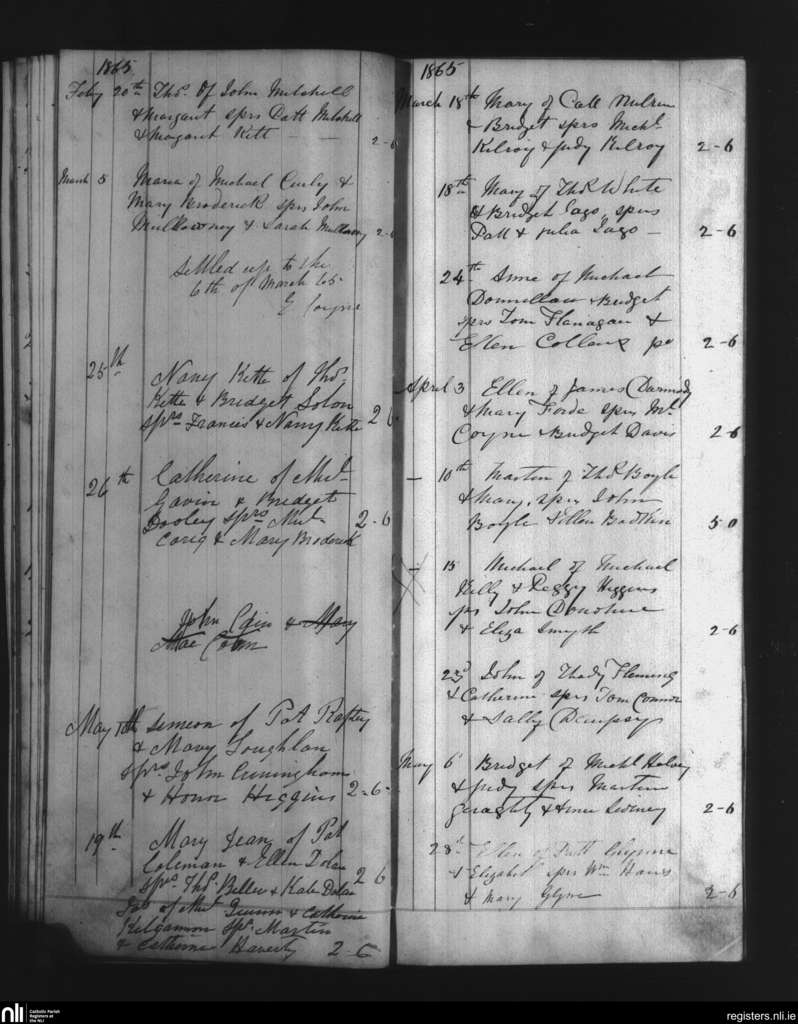 1865
Feby 20th Thos. Of John Mitchell
& Margaret sprs Patt Mitchell
& Margaret Kitt — — 2-6
March 5 Maria of Michael Curly &
Mary Broderick sprs John
Mullowney & Sarah Mullowny 2-6
Settled up to the
6th of March 65
Coyne
25th Nany Kitte of Thos.
Kitte & Bridgett Solon
Sprs Francis & Nanny Kitte 2 6
26th Catherine of Ml.
Gavin & Bridget
Dooley Sprs Ml. 2-6
& Mary Broderick
John & Mary
May of Pat Raftey
& Mary Loughlan
Sprs John Cuningham
& Honor Higgins 2-6-
19th Mary Jean of Pat
Coleman & Ellen Dolan
Sprs Thos. & Kate Dolan 2 6
of Ml. Quinn & Catherine
Kilgannon Spr. Martin
& Catherine Haverty 2-6
1865
March 18th Mary of
& Bridget sprs Michl.
Kilroy & Judy Kilroy 2-6
18th Mary of Thos. White
& Bridget Jago sprs
Patt & Julia Jago — 2-6
24th Anne of Michael
Donnellan & Bridget
sprs Tom Flanagan &
Ellen 2-6
April 3 Ellen of James
& Mary Forde sprs Ml.
Coyne & Bridget Davis 2-6
— 10th Martin of Thos. Boyle
& Mary, sprs John
Boyle & Ellen 5 0
— 15 Michael of Michael
Kelly & Peggy Higgins
sprs John Donohue
& Eliza Smyth 2-6
23d John of Thady Fleming
& Catherine sprs Tom Connor
& Sally Dempsey
May 6 Bridget of Michl
& Judy sprs Martin
Geraghty & Honor 2-6
28th Ellen of Patt
& Elizabet sprs Wm
& Mary Glynn 2-6
NLI
Catholic Parish
Registers at
the NLI
registers.nli.ie